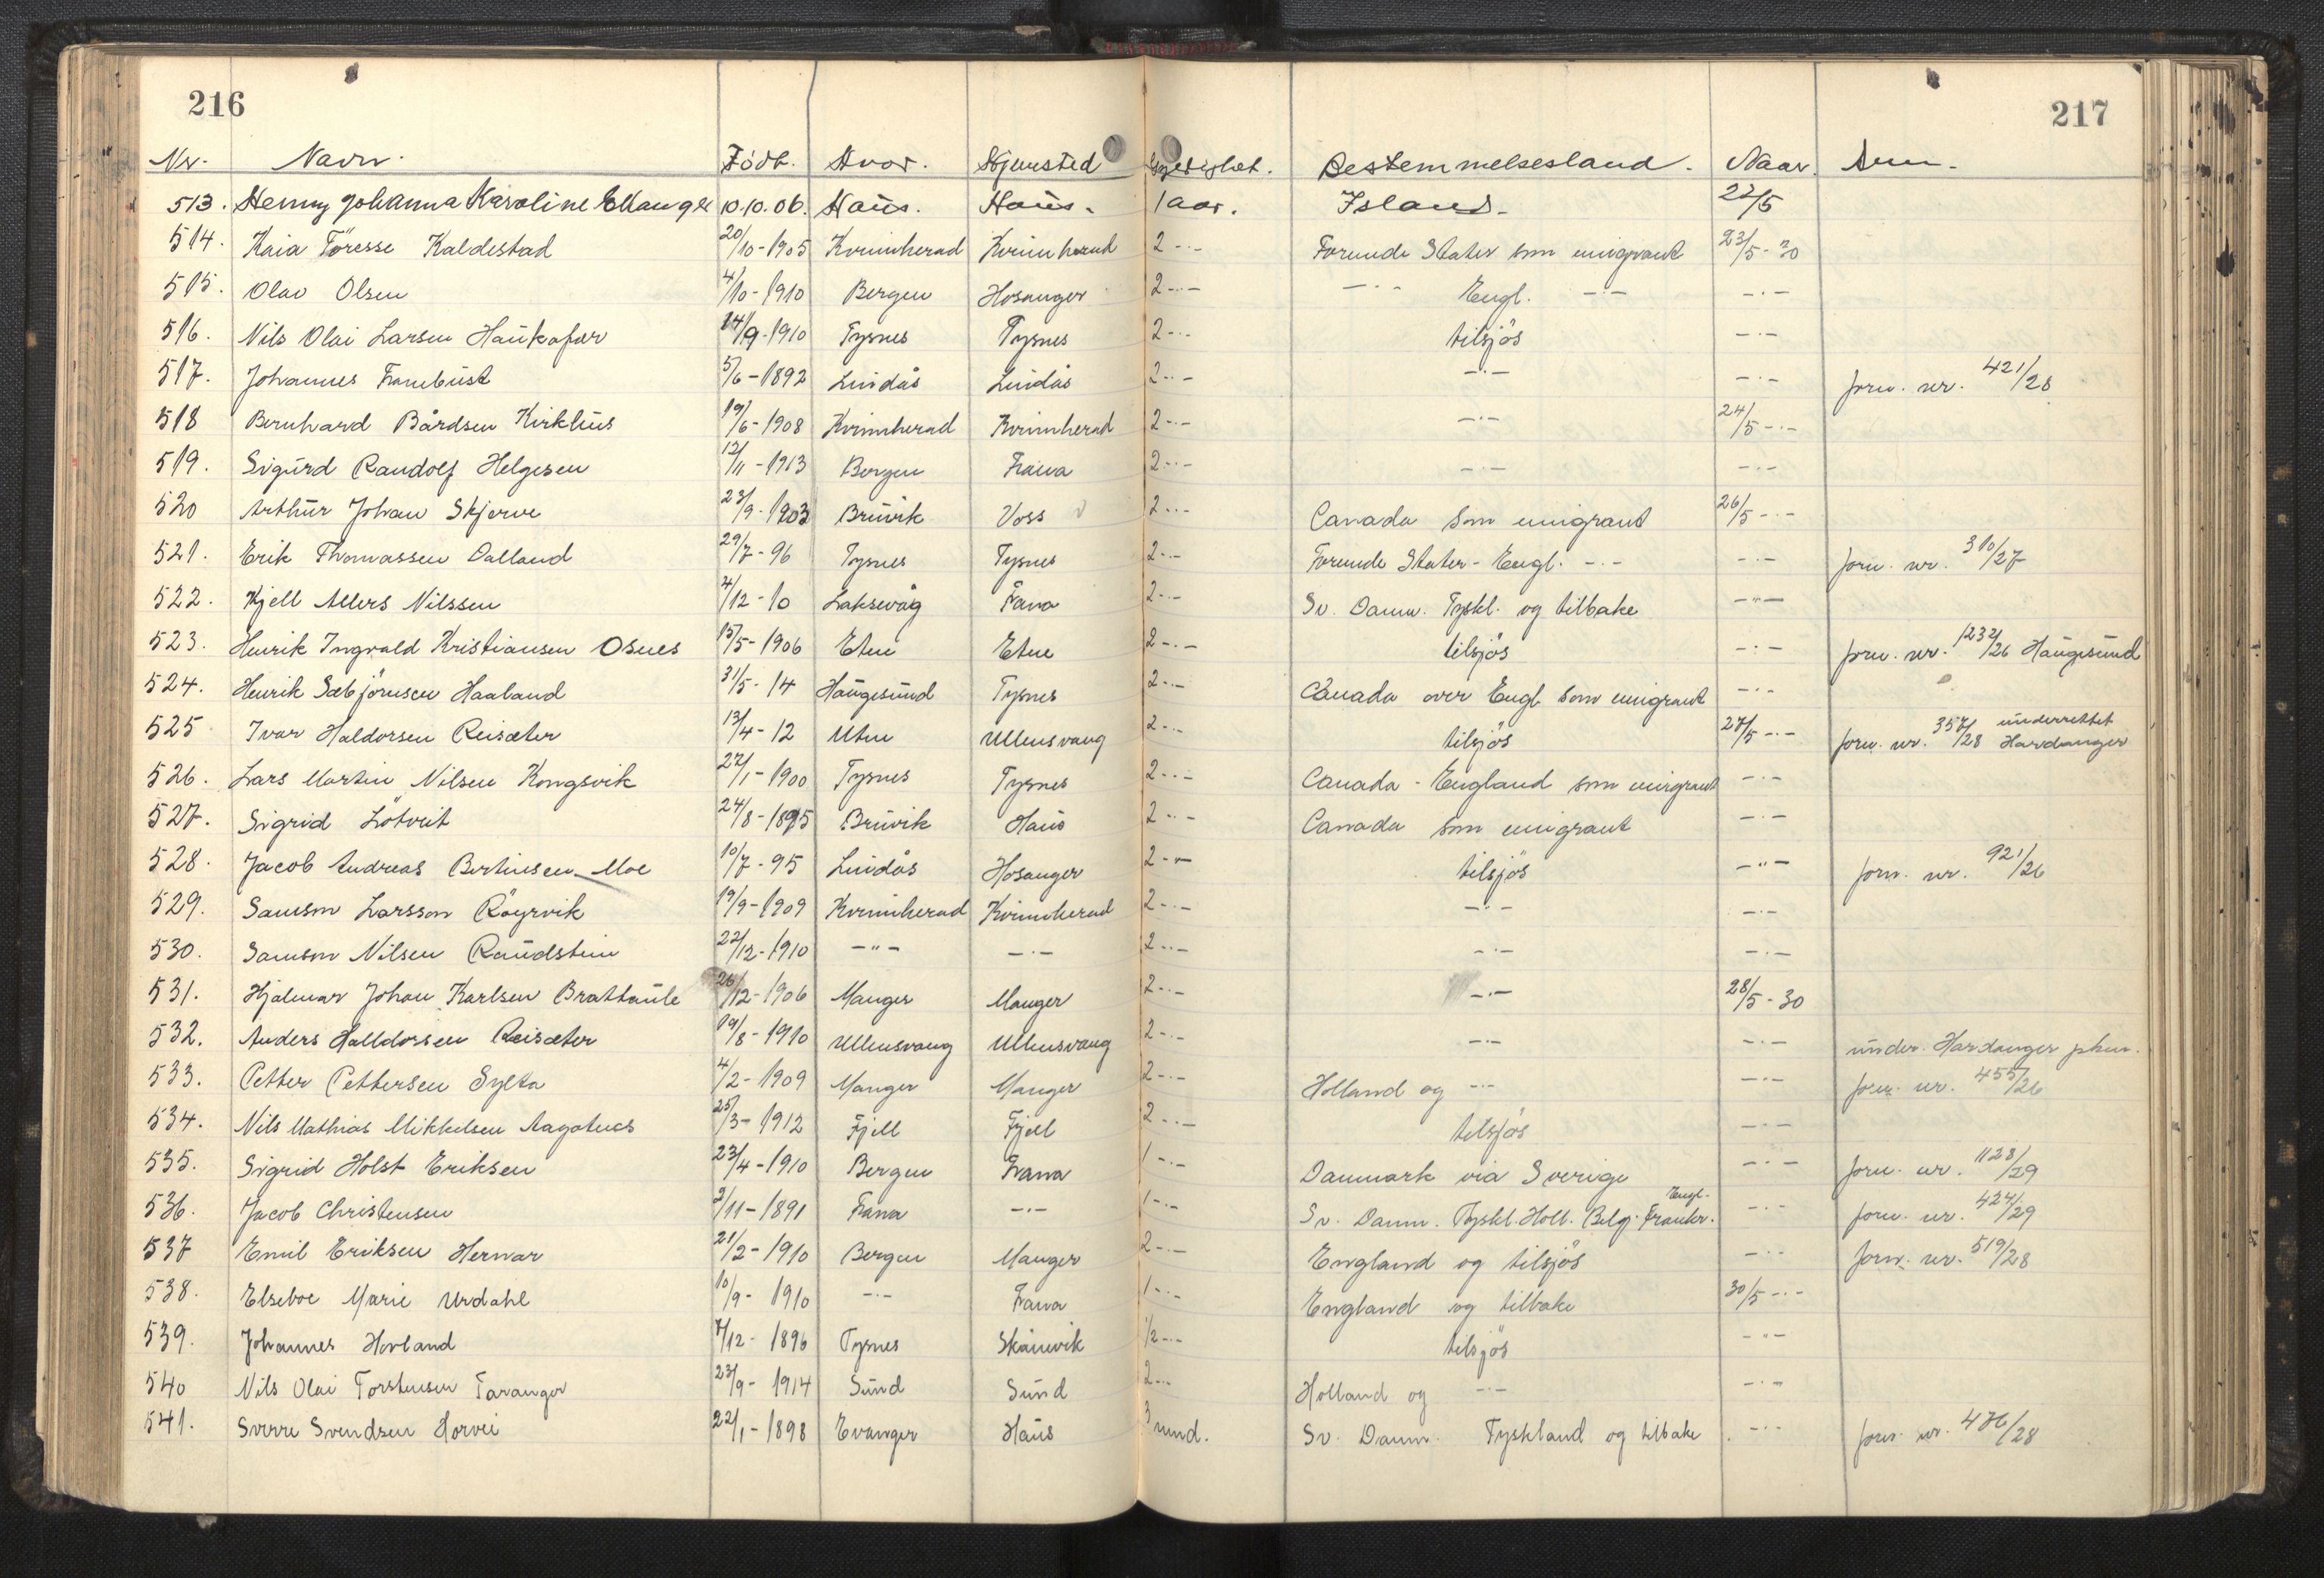 216
217
Nr. Navn. Född. Hvor. Hjemsted Gyldighet. Bestemmelsesland. Naar. Anm.
513. Henny Johanna Karoline 10.10.06. Haus. Haus. 1 aar. Island. 22/5
514. Kaia Kaldestad 20/10-1905 Kvinnherad Kvinnherad 2 -·- Forende Stater som emigrant 23/5-30
515. Olav Olsen 4/10-1910 Bergen Hosanger 2 -·- -·- Engl. -·- -·-
516. Nils Olai Larsen Haukafær 14/9-1910 Tysnes Tysnes 2 -·- tilsjös -·-
517. Johannes Frambust 5/6-1892 Lindås Lindås 2 -·- -·- -·- forn. nr. 421/28
518 Bernhard Bårdsen Kirkhus 19/6-1908 Kvinnherad Kvinnherad 2 -·- -·- 24/5 -·-
519. Sigurd Randolf Helgesen 12/11-1913 Bergen Fana 2 -·- -·- -·-
520 Arthur Johan Skjerve 23/9-1903 Bruvik Voss 2 -·- Canada som emigrant 26/5 -·-
521. Erik Thomassen Dalland 29/7-96 Tysnes Tysnes 2 -·- Forende Stater - Engl. -·- -·- forn. nr. 310/27
522. Kjell Allers Nilssen 4/12-10 Laksevåg Fana 2 -·- Sv. Danm. Tyskl. og tilbake -"-
523. Henrik Ingvald Kristiansen Osnes 15/5-1906 Etne Etne 2 -·- tilsjös -·- forn. nr. 1232/26 Haugesund
524. Henrik Sæbjörnsen Haaland 31/5-14 Haugesund Tysnes 2 -·- Canada over Engl. som emigrant -·-
525 Ivar Haldorsen Reisæter 13/4-12 Utne Ullensvang 2 -·- tilsjös 27/5 -·- forn. nr. 357/28 underrettet Hardanger
526. Lars Martin Nilsen Kongsvik 27/1-1900 Tysnes Tysnes 2 -·- Canada - England som emigrant -·-
527. Sigrid Lötveit 24/8-1895 Bruvik Haus 2 -·- Canada som emigrant -·-
528. Jacob Andreas Bertinsen Moe 10/7-95 Lindås Hosanger 2 -"- tilsjös -"- forn. nr. 921/26
529. Samson Larsson Röyrvik 19/9-1909 Kvinnherad Kvinnherad 2 -·- -·- -·-
530. Samson Nilsen Raudstein 22/12-1910 -"- -·- 2 -·- -·- -·-
531. Hjalmar Johan Karlsen Brattaule 26/12-1906 Manger Manger 2 -·- -·- 28/5-30
532. Anders Halldorsen Reisæter 19/8-1910 Ullensvang Ullensvang 2 -·- -·- -·- under. Hardanger
533. Petter Pettersen Sylta 4/2-1909 Manger Manger 2 -·- Holland og -·- -·- forn. nr. 455/26
534. Nils Mathias Mikkelsen Aagotnes 25/3-1912 Fjell Fjell 2 -·- tilsjös -·-
535. Sigrid Holst Eriksen 23/4-1910 Bergen Fana 1 -·- Danmark via Sverige -·- forn. nr. 1128/29
536. Jacob Christensen 2/11-1891 Fana -·- 1 -·- Sv. Danm. Tyskl. Holl. Belg. Frankr. Engl. -·- forn. nr. 424/29
537 Emil Eriksen Hernar 21/2-1910 Bergen Manger 2 -·- England og tilsjös -·- forn. nr. 519/28
538. Elseboe Marie Urdahl 10/9-1910 -·- Fana 1 -·- England og tilbake 30/5 -·-
539. Johannes Hovland 7/12-1896 Tysnes Skånevik 1/2 -·- tilsjös -"-
540 Nils Olai Torstensen Taranger 23/9-1914 Sund Sund 2 -·- Holland og -·- -·-
541. Sverre Svendsen Horvei 22/1-1898 Evanger Haus 3 mnd. Sv. Danm. Tyskland og tilbake -·- forn. nr. 476/28